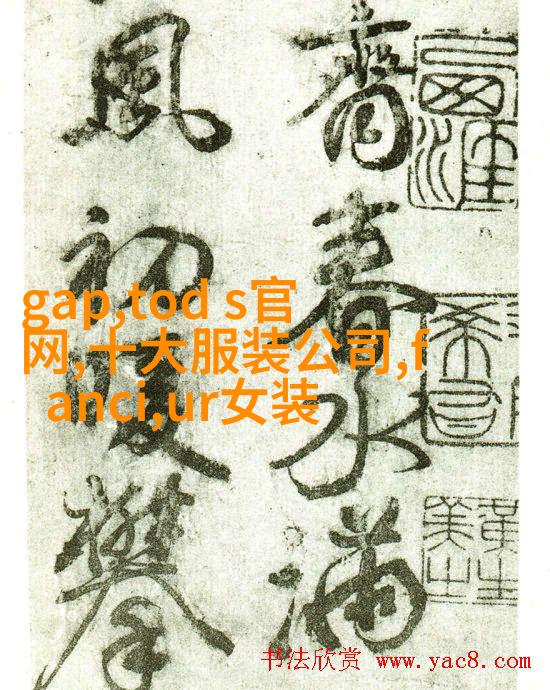 齊春水滿
風初暖攀
gap,tod s官
网,十大服装公司,f
anci,ur女装
书法欣赏 www.yac8.com